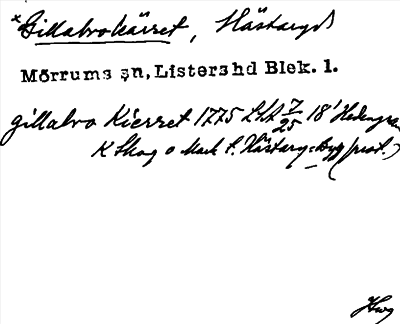 *Gillabokärret, Hästaryd
Mörrums sn, Listers hd Blek. l.
gillabo Kierret 1775 LSA 7/25 18'
K Skog o Mark t. Hästary= (prot.)